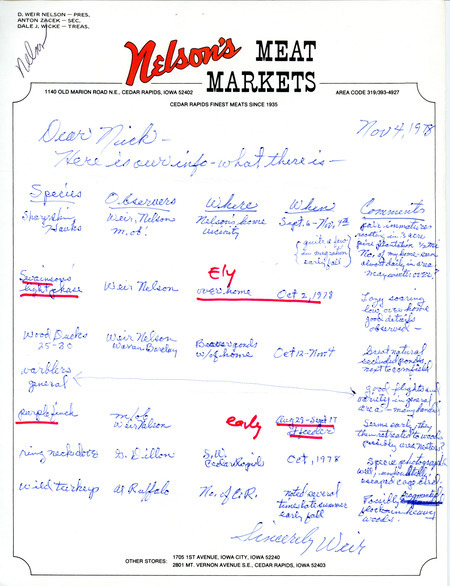 D. WEIR NELSON – PRES.
ANTON ZACEK – SEC.
DALE J. WICKE – TREAS.
Nelson
Nelson's MEAT
MARKETS
1140 OLD MARION ROAD N.E., CEDAR RAPIDS, IOWA 52402
AREA CODE 319/393-4927
CEDAR RAPIDS FINEST MEATS SINCE 1935
Nov 4, 1978
Dear Nick –
Here is our info - what there is –
Species Observers Where When Comments
Sharpshin Hawks
Weir, Nelson
M.ob.
Nelson's home
vicinity
Sept. 6 - Nov. 4th
(quite a few
in migration
early fall)
pair immatures
roosting in
pine plantation
No. of my home seen
almost daily in area
may winter over?
Swainson's
light phase
Weir Nelson
Ely
over home
Oct 2, 1978
Lazy soaring
low over home
good details
observed –
Wood Ducks
25-30
Weir Nelson
Beaver ponds
w/of home
Oct 12 - Nov 4
Great natural
secluded ponds
next to cornfield
warblers
general
good flights and
variety in general
area –
purple finch
m/ob
Weir Nelson
early
Aug 27 - Sept 17
Feeder
Same early, they
then retreated to woods
ring neck dove
G. Dillon
S.W.
Cedar Rapids
Oct, 1978
escaped cage bird.
Wild turkeys
Al Ruffalo
No. of C.R.
Noted several
times late summer
early fall
Possibly
flock in heavy
woods.
Sincerely Weir
OTHER STORES:
1705 1ST AVENUE, IOWA CITY, IOWA 52240
2801 MT. VERNON AVENUE S.E., CEDAR RAPIDS, IOWA 52403